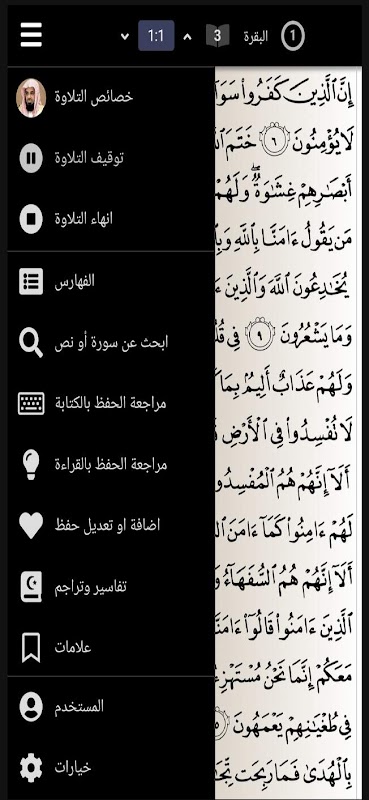 1 البقرة 3 1:1
خصائص التلاوة
توقيف التلاوة
انهاء التلاوة
الفهارس
ابحث عن سورة أو نص
مراجعة الحفظ بالكتابة
مراجعة الحفظ بالقراءة
اضافة او تعديل حفظ
تفاسير وتراجم
علامات
المستخدم
خيارات
إِنَّ ٱلَّذِينَ كَفَرُوا۟ سَوَا
لَا يُؤْمِنُونَ ٦ خَتَمَ ٱل
أَبْصَٰرِهِمْ غِشَٰوَةٌ ۖ وَلَهُمْ
مَن يَقُولُ ءَامَنَّا بِٱللَّهِ وَبِ
يُخَٰدِعُونَ ٱللَّهَ وَٱلَّذِينَ ءَ
وَمَا يَشْعُرُونَ ٩ فِى قُلُ
وَلَهُمْ عَذَابٌ أَلِيمٌۢ بِمَا كَ
لَا تُفْسِدُوا۟ فِى ٱلْأَرْضِ
أَلَآ إِنَّهُمْ هُمُ ٱلْمُفْسِدُو
لَهُمْ ءَامِنُوا۟ كَمَآ ءَامَنَ ٱل
أَلَآ إِنَّهُمْ هُمُ ٱلسُّفَهَآءُ وَ
ٱلَّذِينَ ءَامَنُوا۟ قَالُوٓا۟ ءَامَنَّا
مَعَكُمْ إِنَّمَا نَحْنُ مُسْتَهْزِءُ
فِى طُغْيَٰنِهِمْ يَعْمَهُونَ
بِٱلْهُدَىٰ فَمَا رَبِحَت تِّجَ